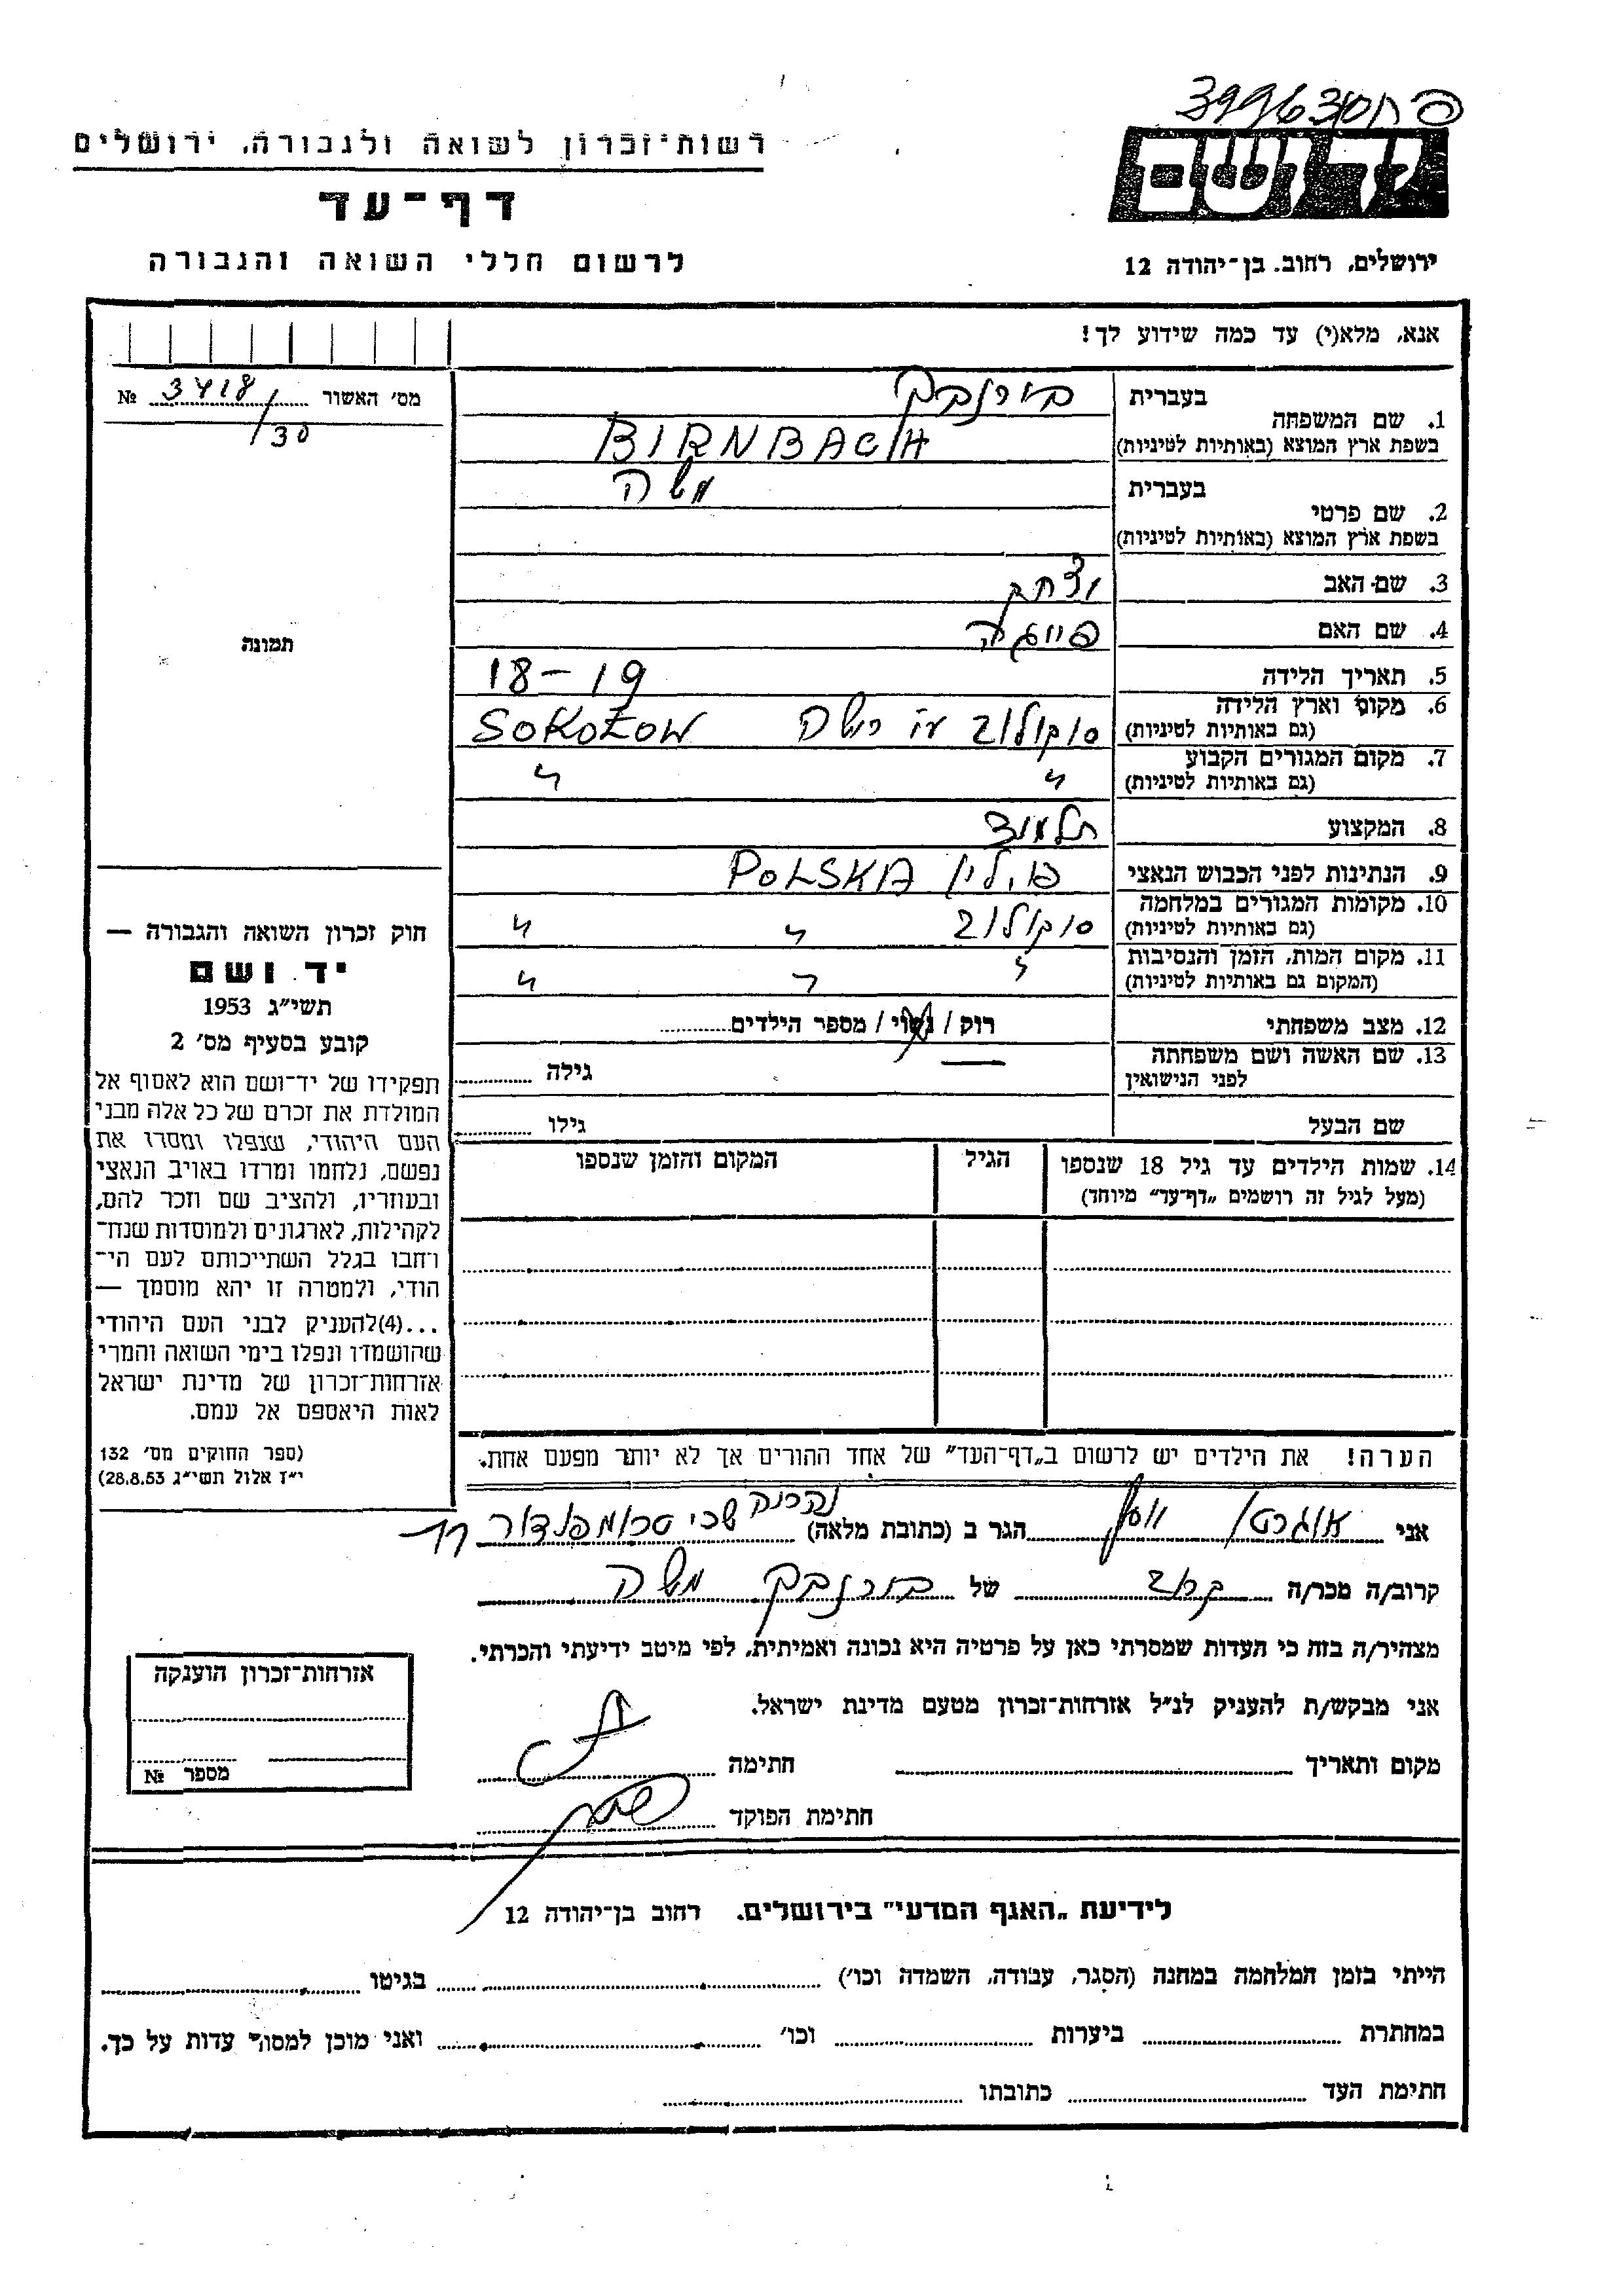 399630 פח
רשות־זכרון לשואה ולגבורה, ירושלים
דף־עד
לרשום חללי השואה והגבורה
יד ושם
ירושלים, רחוב. בן־יהודה 12
אנא, מלא(י) עד כמה שידוע לך!
מס׳ האשור № 3418/30
תמונה
1. שם המשפחה
בעברית בירנבך
בשפת ארץ המוצא (באותיות לטיניות) BIRNBACH
2. שם פרטי
בעברית משה
בשפת ארץ המוצא (באותיות לטיניות)
3. שם האב יצחק
4. שם האם פייגה
5. תאריך הלידה 18-19
6. מקום וארץ הלידה
(גם באותיות לטיניות) סוקולוב SOKOŁOW
7. מקום המגורים הקבוע
(גם באותיות לטיניות) " "
8. המקצוע תלמיד
9. הנתינות לפני הכבוש הנאצי פולין POLSKA
10. מקומות המגורים במלחמה
(גם באותיות לטיניות) סוקולוב " "
11. מקום המות, הזמן והנסיבות
(המקום גם באותיות לטיניות) " " "
12. מצב משפחתי רוק / נשוי / מספר הילדים
13. שם האשה ושם משפחתה
לפני הנישואין — גילה
שם הבעל גילו
14. שמות הילדים עד גיל 18 שנספו
(מעל לגיל זה רושמים „דף־עד” מיוחד)
הגיל
המקום והזמן שנספו
הערה! את הילדים יש לרשום ב„דף־העד” של אחד ההורים אך לא יותר מפעם אחת.
חוק זכרון השואה והגבורה —
יד ושם
תשי״ג 1953
קובע בסעיף מס׳ 2
תפקידו של יד־ושם הוא לאסוף אל
המולדת את זכרם של כל אלה מבני
העם היהודי, שנפלו ומסרו את
נפשם, נלחמו ומרדו באויב הנאצי
ובעוזריו, ולהציב שם וזכר להם,
לקהילות, לארגונים ולמוסדות שנח־
רחבו בגלל השתייכותם לעם הי־
הודי, ולמטרה זו יהא מוסמך —
...(4)להעניק לבני העם היהודי
שהושמדו ונפלו בימי השואה והמרי
אזרחות־זכרון של מדינת ישראל
לאות היאספם אל עמם.
(ספר החוקים מס׳ 132
י״ז אלול תשי״ג 28.8.53)
אני הגר ב (כתובת מלאה) טרומפלדור 11
קרוב/ה מכר/ה קרוב של בירנבך משה
מצהיר/ה בזה כי העדות שמסרתי כאן על פרטיה היא נכונה ואמיתית, לפי מיטב ידיעתי והכרתי.
אני מבקש/ת להעניק לנ״ל אזרחות־זכרון מטעם מדינת ישראל.
מקום ותאריך חתימה
חתימת הפוקד
אזרחות־זכרון הוענקה
מספר №
לידיעת „האגף המדעי” בירושלים. רחוב בן־יהודה 12
הייתי בזמן המלחמה במחנה (הסגר, עבודה, השמדה וכו׳) בגיטו
במחתרת ביערות וכו׳ ואני מוכן למסור עדות על כך.
חתימת העד כתובתו